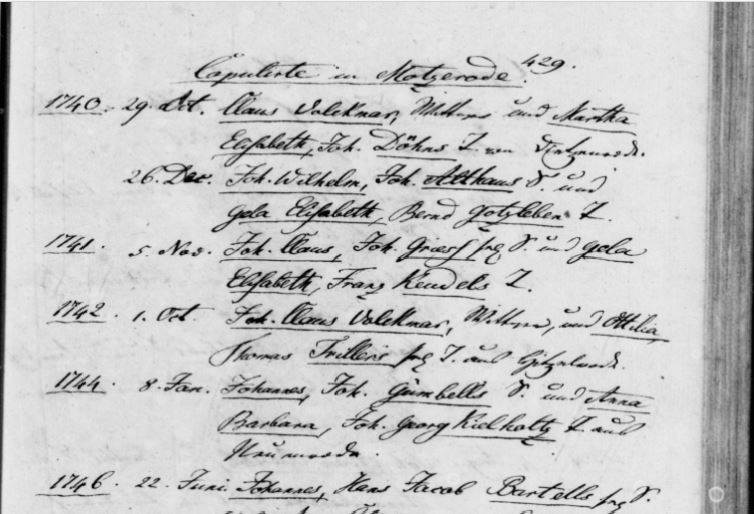 429.
Copulirte in Motzerode.
1740. 29. Oct. Claus Volckmar, Wittwer und Martha
Elisabeth, Joh. Döhns T. von
26. Dec. Joh. Wilhelm, Joh. Althaus S. und
Gela Elisabeth, Bernd Gotzleben T.
1741. 5. Nov. Joh. Claus, Joh. Groesch S. und Gela
Elisabeth, Franz Keudels T.
1742. 1. Oct. Joh. Claus Volckmar, Wittwer, und Ottilia,
Thomas Trillers T. aus
1744. 8. Jan. Johannes, Joh. Gümbells S. und Anna
Barbara, Joh. Georg Kielholtz T. aus
1746. 22. Juni Johannes, Hans Jacob Bartells S.